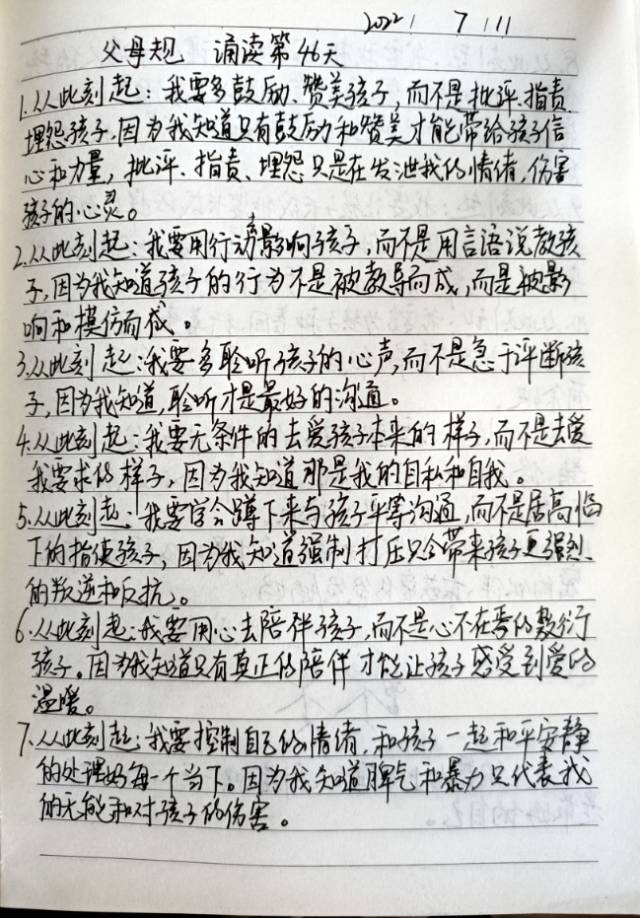 2022 7 11
父母规 诵读第46天
1.从此刻起:我要多鼓励、赞美孩子,而不是批评、指责
埋怨孩子.因为我知道只有鼓励和赞美才能带给孩子信
心和力量,批评、指责、埋怨只是在发泄我的情绪,伤害
孩子的心灵。
2.从此刻起:我要用行动影响孩子,而不是用言语说教孩
子,因为我知道孩子的行为不是被教导而成,而是被影
响和模仿而成。
3.从此刻起:我要多聆听孩子的心声,而不是急于评断孩
子,因为我知道,聆听才是最好的沟通。
4.从此刻起:我要无条件的去爱孩子本来的样子,而不是去爱
我要求的样子,因为我知道那是我的自私和自我。
5.从此刻起:我要学会蹲下来与孩子平等沟通,而不是居高临
下的指使孩子,因为我知道强制打压只会带来孩子更强烈
的叛逆和反抗。
6.从此刻起:我要用心去陪伴孩子,而不是心不在焉的敷衍
孩子.因为我知道只有真正的陪伴才能让孩子感受到爱的
温暖。
7.从此刻起:我要控制自己的情绪,和孩子一起和平安静
的处理好每一个当下。因为我知道脾气和暴力只代表我
的无能和对孩子的伤害。